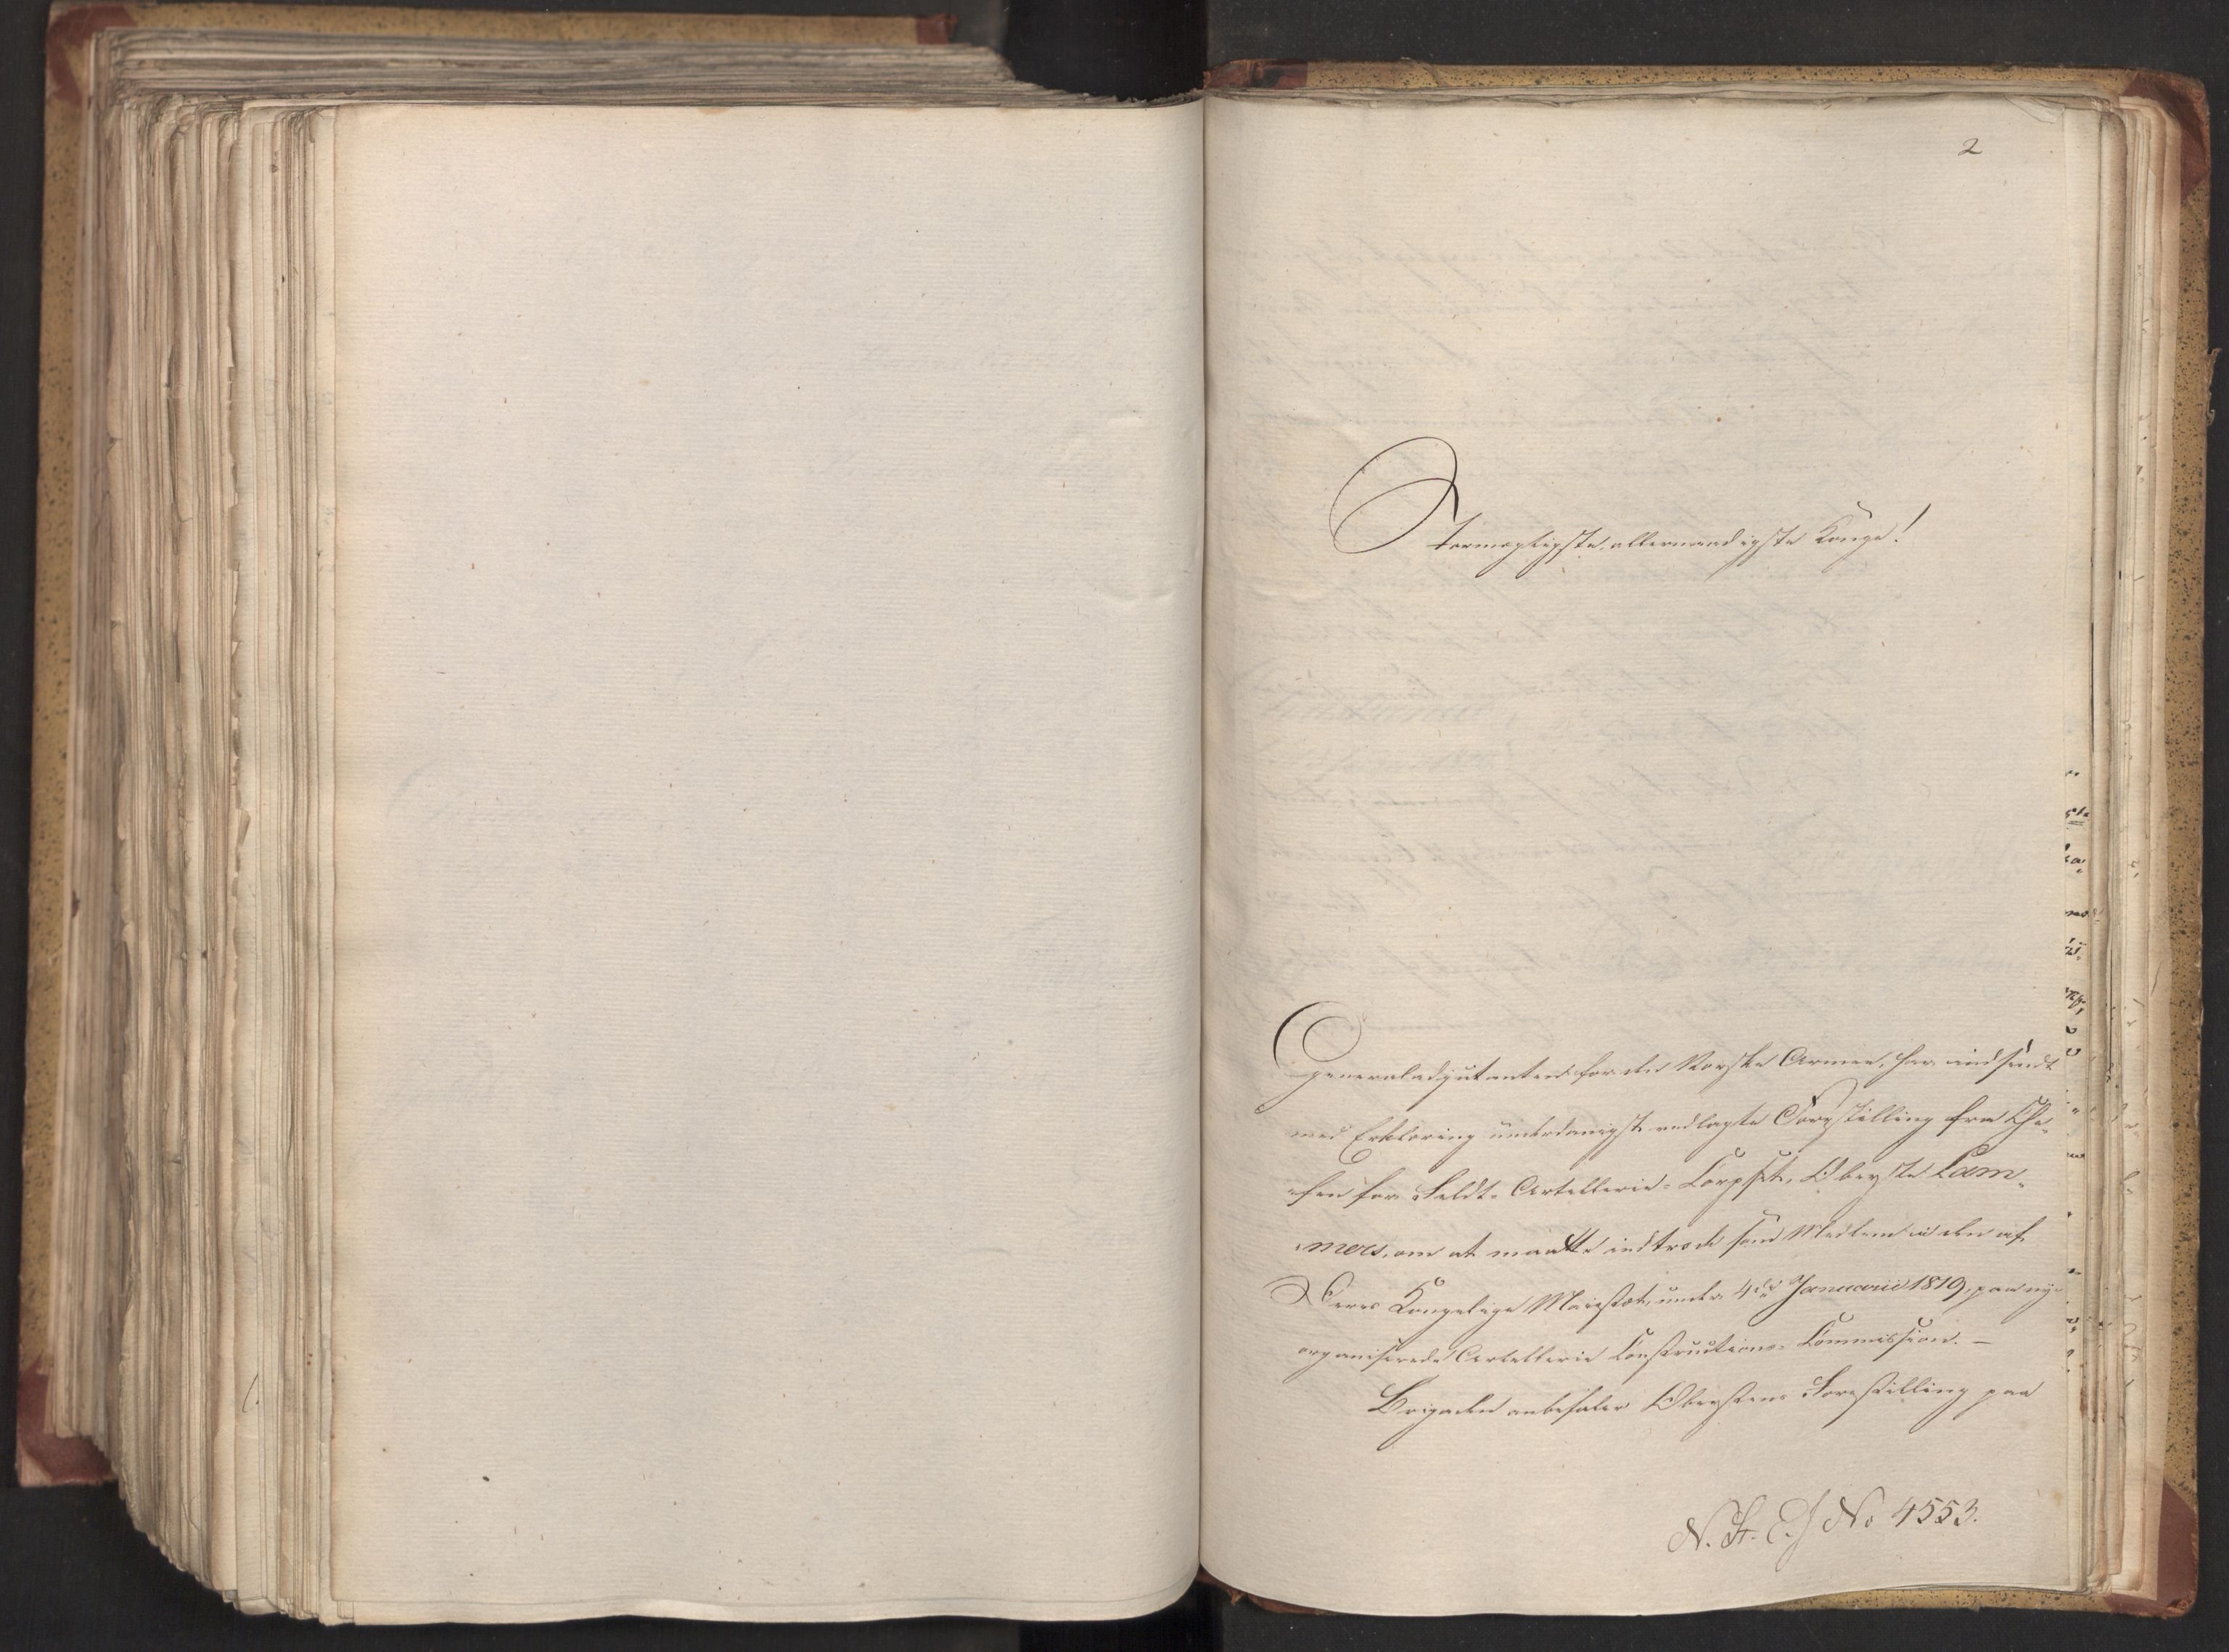 2
Stormægtigste, allernaadigste Konge!
Generaladjutanten for den Norske Armee, har indsendt
med Erklæring underdanigst vedlagte Forestilling fra Che-
fen for Feldt-Artillerie-Corpset, Oberste Lam-
mers, om at maatte indtræde som Medlem i den af
Deres Kongelige Majestæt, under 4de Januarii 1819, paa nye
organiserede Artillerie Constructions-Commission. –
Brigaden anbefaler Oberstens Forestilling paa
N. St. E. J No 4553.